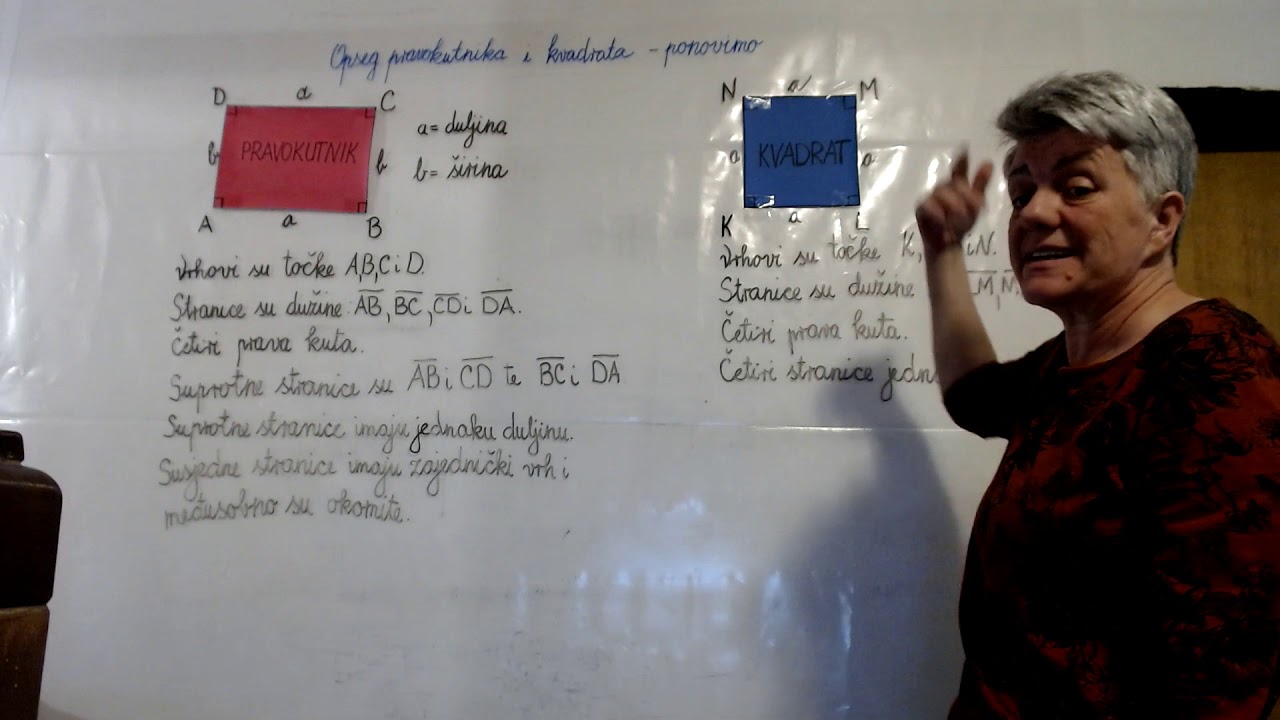 Opseg pravokutnika i kvadrata - ponovimo
D a C
b PRAVOKUTNIK b
A a B
a = duljina
b = širina
Vrhovi su točke A,B,C i D.
Stranice su dužine: A̅B̅, B̅C̅, C̅D̅ i D̅A̅.
Četiri prava kuta.
Suprotne stranice su A̅B̅ i C̅D̅ te B̅C̅ i D̅A̅
Suprotne stranice imaju jednaku duljinu.
Susjedne stranice imaju zajednički vrh i
međusobno su okomite.
N a M
a KVADRAT a
K a L
Vrhovi su točke K, i N.
Stranice su dužine M̅,
Četiri prava kuta.
Četiri stranice